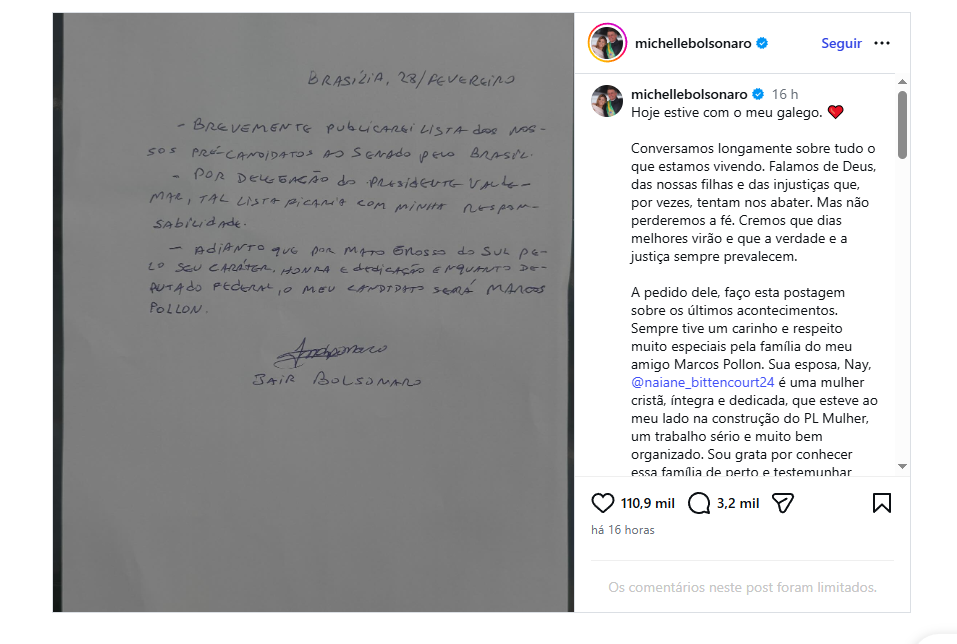 BRASÍLIA, 28/FEVEREIRO
- BREVEMENTE PUBLICAREI LISTA DOS NOS-
SOS PRÉ-CANDIDATOS AO SENADO PELO BRASIL.
- POR DELEGAÇÃO DO PRESIDENTE VALDE-
MAR, TAL LISTA FICARIA COM MINHA RESPON-
SABILIDADE.
- ADIANTO QUE POR MATO GROSSO DO SUL PE-
LO SEU CARÁTER, HONRA E DEDICAÇÃO ENQUANTO DE-
PUTADO FEDERAL, O MEU CANDIDATO SERÁ MARCOS
POLLON.
JAIR BOLSONARO
michellebolsonaro
Seguir
michellebolsonaro 16 h
Hoje estive com o meu galego. ❤️
Conversamos longamente sobre tudo o
que estamos vivendo. Falamos de Deus,
das nossas filhas e das injustiças que,
por vezes, tentam nos abater. Mas não
perderemos a fé. Cremos que dias
melhores virão e que a verdade e a
justiça sempre prevalecem.
A pedido dele, faço esta postagem
sobre os últimos acontecimentos.
Sempre tive um carinho e respeito
muito especiais pela família do meu
amigo Marcos Pollon. Sua esposa, Nay,
@naiane_bittencourt24 é uma mulher
cristã, íntegra e dedicada, que esteve ao
meu lado na construção do PL Mulher,
um trabalho sério e muito bem
organizado. Sou grata por conhecer
essa família de perto e testemunhar
110,9 mil 3,2 mil
há 16 horas
Os comentários neste post foram limitados.